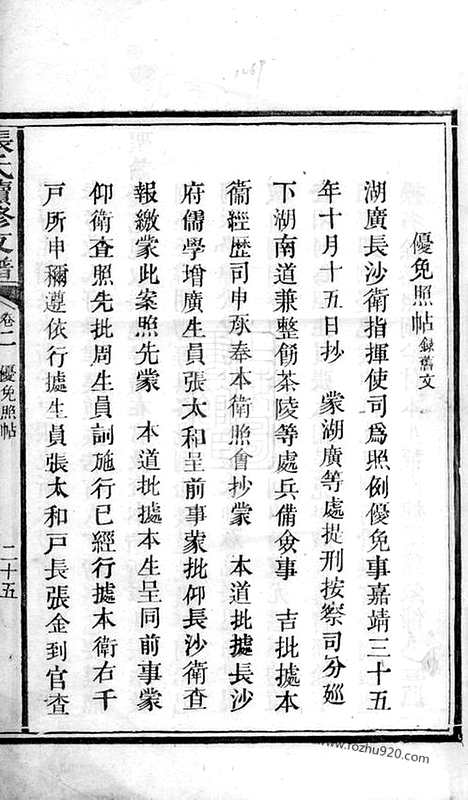 優免照帖 錄舊文
湖廣長沙衛指揮使司爲照例優免事嘉靖三十五
年十月十五日抄　蒙湖廣等處提刑按察司分廵
下湖南道兼整飭茶陵等處兵備僉事　吉批據本
衞經歷司申承奉本衛照會抄蒙　本道批據長沙
府儒學增廣生員張太和呈前事蒙批仰長沙衞查
報繳蒙此案照先蒙　本道批據本生呈同前事蒙
仰衛查照先批周生員訓施行已經行據本衛右千
戸所申稱遵依行據生員張太和戸長張金到官查
張氏續修支譜
卷二
優免照帖
二十五
www.fozhu920.com